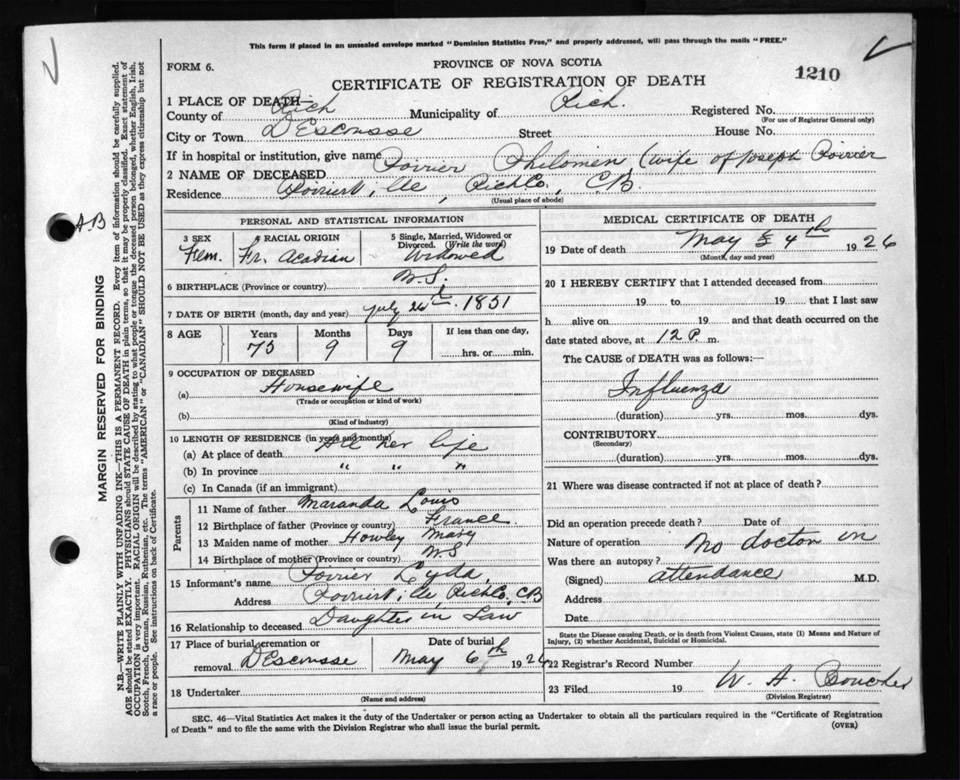 This form if placed in an unsealed envelope marked "Dominion Statistics Free," and properly addressed, will pass through the mails "FREE."
FORM 6.
PROVINCE OF NOVA SCOTIA
CERTIFICATE OF REGISTRATION OF DEATH
1210
1 PLACE OF DEATH—
County of Rich Municipality of Rich. Registered No.
(For use of Registrar General only)
City or Town D'Escousse Street House No.
If in hospital or institution, give name
2 NAME OF DECEASED Poirier Philomen (wife of Joseph Poirier
Residence Poirierville, Rich Co., C.B.
(Usual place of abode)
PERSONAL AND STATISTICAL INFORMATION
3 SEX 4 RACIAL ORIGIN 5 Single, Married, Widowed or Divorced. (Write the word)
Fem. Fr. Acadian Widowed
6 BIRTHPLACE (Province or country) N.S.
7 DATE OF BIRTH (month, day and year) July 26th. 1851
8 AGE Years Months Days If less than one day,
75 9 9 hrs. or min.
9 OCCUPATION OF DECEASED
(a) Housewife
(Trade or occupation or kind of work)
(b)
(Kind of industry)
10 LENGTH OF RESIDENCE (in years and months)
(a) At place of death All her life
(b) In province " " "
(c) In Canada (if an immigrant)
Parents
11 Name of father Maranda Louis
12 Birthplace of father (Province or country) France.
13 Maiden name of mother Howley Mary
14 Birthplace of mother (Province or country) N.S
15 Informant's name Poirier Lyda,
Address Poirierville Rich Co, C.B
16 Relationship to deceased Daughter in Law
17 Place of burial, cremation or removal D'Escousse Date of burial May 6th 1926
18 Undertaker
(Name and address)
MEDICAL CERTIFICATE OF DEATH
19 Date of death May 4th 1926
(Month, day and year)
20 I HEREBY CERTIFY that I attended deceased from
19 to 19 that I last saw
h alive on 19 and that death occurred on the
date stated above, at 12 P. m.
The CAUSE of DEATH was as follows:—
Influenza
(duration) yrs. mos. dys.
CONTRIBUTORY
(Secondary)
(duration) yrs. mos. dys.
21 Where was disease contracted if not at place of death?
Did an operation precede death? Date of
Nature of operation No doctor in
Was there an autopsy?
(Signed) attendance M.D.
Address
Date
State the Disease causing Death, or in death from Violent Causes, state (1) Means and Nature of
Injury, (2) whether Accidental, Suicidal or Homicidal.
22 Registrar's Record Number
23 Filed 19 W. A. Boucher
(Division Registrar)
SEC. 46—Vital Statistics Act makes it the duty of the Undertaker or person acting as Undertaker to obtain all the particulars required in the "Certificate of Registration
of Death" and to file the same with the Division Registrar who shall issue the burial permit.
(OVER)
AB
MARGIN RESERVED FOR BINDING
N.B.—WRITE PLAINLY WITH UNFADING INK—THIS IS A PERMANENT RECORD. Every item of information should be carefully supplied.
AGE should be stated EXACTLY. PHYSICIANS should STATE CAUSE OF DEATH in plain terms, so that it may be properly classified. Exact statement of
OCCUPATION is very important. RACIAL ORIGIN will be described by stating to what people or tongue the deceased person belonged, whether English, Irish,
Scotch, French, German, Russian, Ruthenian, etc. The terms "AMERICAN" or "CANADIAN" SHOULD NOT BE USED as they express citizenship but not
a race or people. See instructions on back of Certificate.